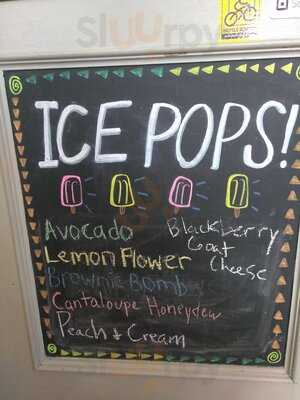 Slurrpy
ICE POPS!
Avocado
Blackberry
Goat
Cheese
Lemon Flower
Brownie Bomb
Cantaloupe Honeydew
Peach & Cream